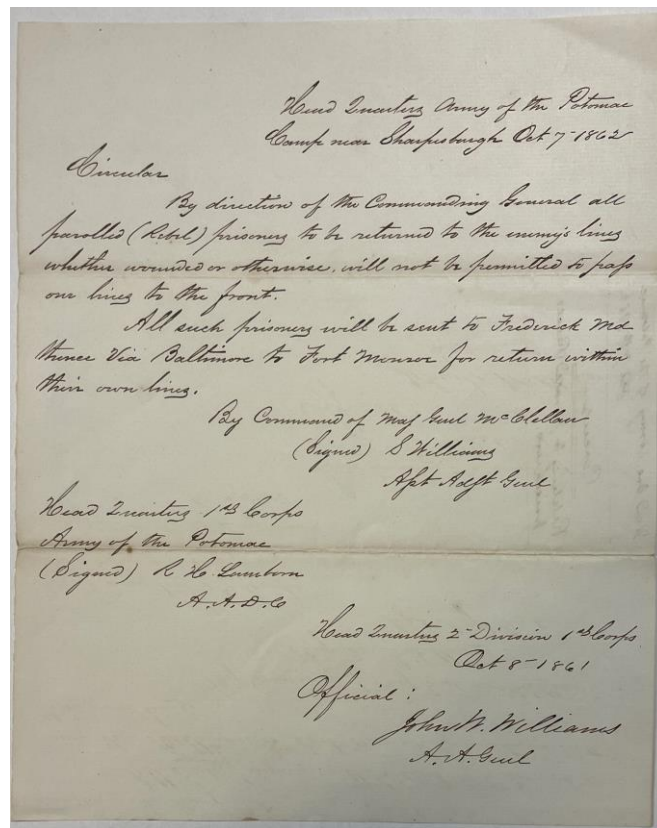 Head Quarters Army of the Potomac
Camp near Sharpesburgh Oct 7-1862
Circular
By direction of the Commanding General all
parolled (Rebel) prisoners to be returned to the enemy's lines
whether wounded or otherwise, will not be permitted to pass
our lines to the front.
All such prisoners will be sent to Frederick Md
thence Via Baltimore to Fort Monroe for return within
their own lines.
By Command of Maj Genl McClellan
(Signed) S Williams
Asst Adjt Genl
Head Quarters 1st Corps
Army of the Potomac
(Signed) R H Lamborn
A.A.D.C
Head Quarters 2- Division 1st Corps
Oct 8-1861
Official :
John W. Williams
A. A. Genl